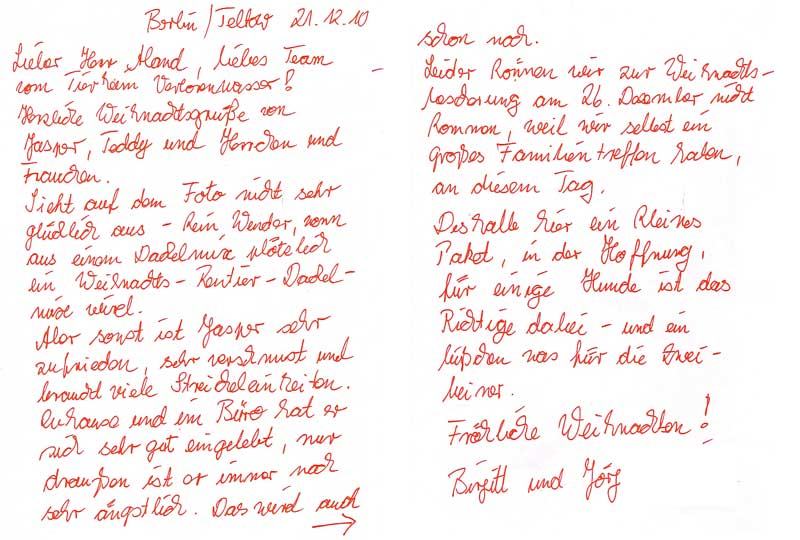 Berlin/Teltow 21.12.10
Lieber Herr Aland, liebes Team
vom Tierheim Verlorenwasser!
Herzliche Weihnachtsgrüße von
Jasper, Teddy und Herrchen und
Frauchen.
Sieht auf dem Foto nicht sehr
glücklich aus - kein Wunder, wenn
aus einem Dackelmix plötzlich
ein Weihnachts-Rentier-Dackel-
mix wird.
Aber sonst ist Jasper sehr
zufrieden, sehr verschmust und
braucht viele Streicheleinheiten.
Zuhause und im Büro hat er
sich sehr gut eingelebt, nur
draußen ist er immer noch
sehr ängstlich. Das wird auch
→
schon noch.
Leider können wir zur Weihnachts-
bescherung am 26. Dezember nicht
kommen, weil wir selbst ein
großes Familientreffen haben,
an diesem Tag.
Deshalb hier ein kleines
Paket, in der Hoffnung,
für einige Hunde ist das
Richtige dabei - und ein
bißchen was für die Zwei-
beiner.
Fröhliche Weihnachten!
Birgitt und Jörg